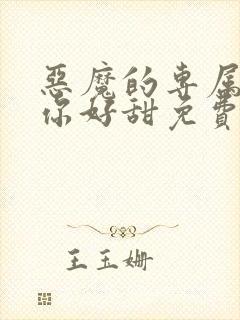 恶魔的专属
你好甜免费
王玉姗